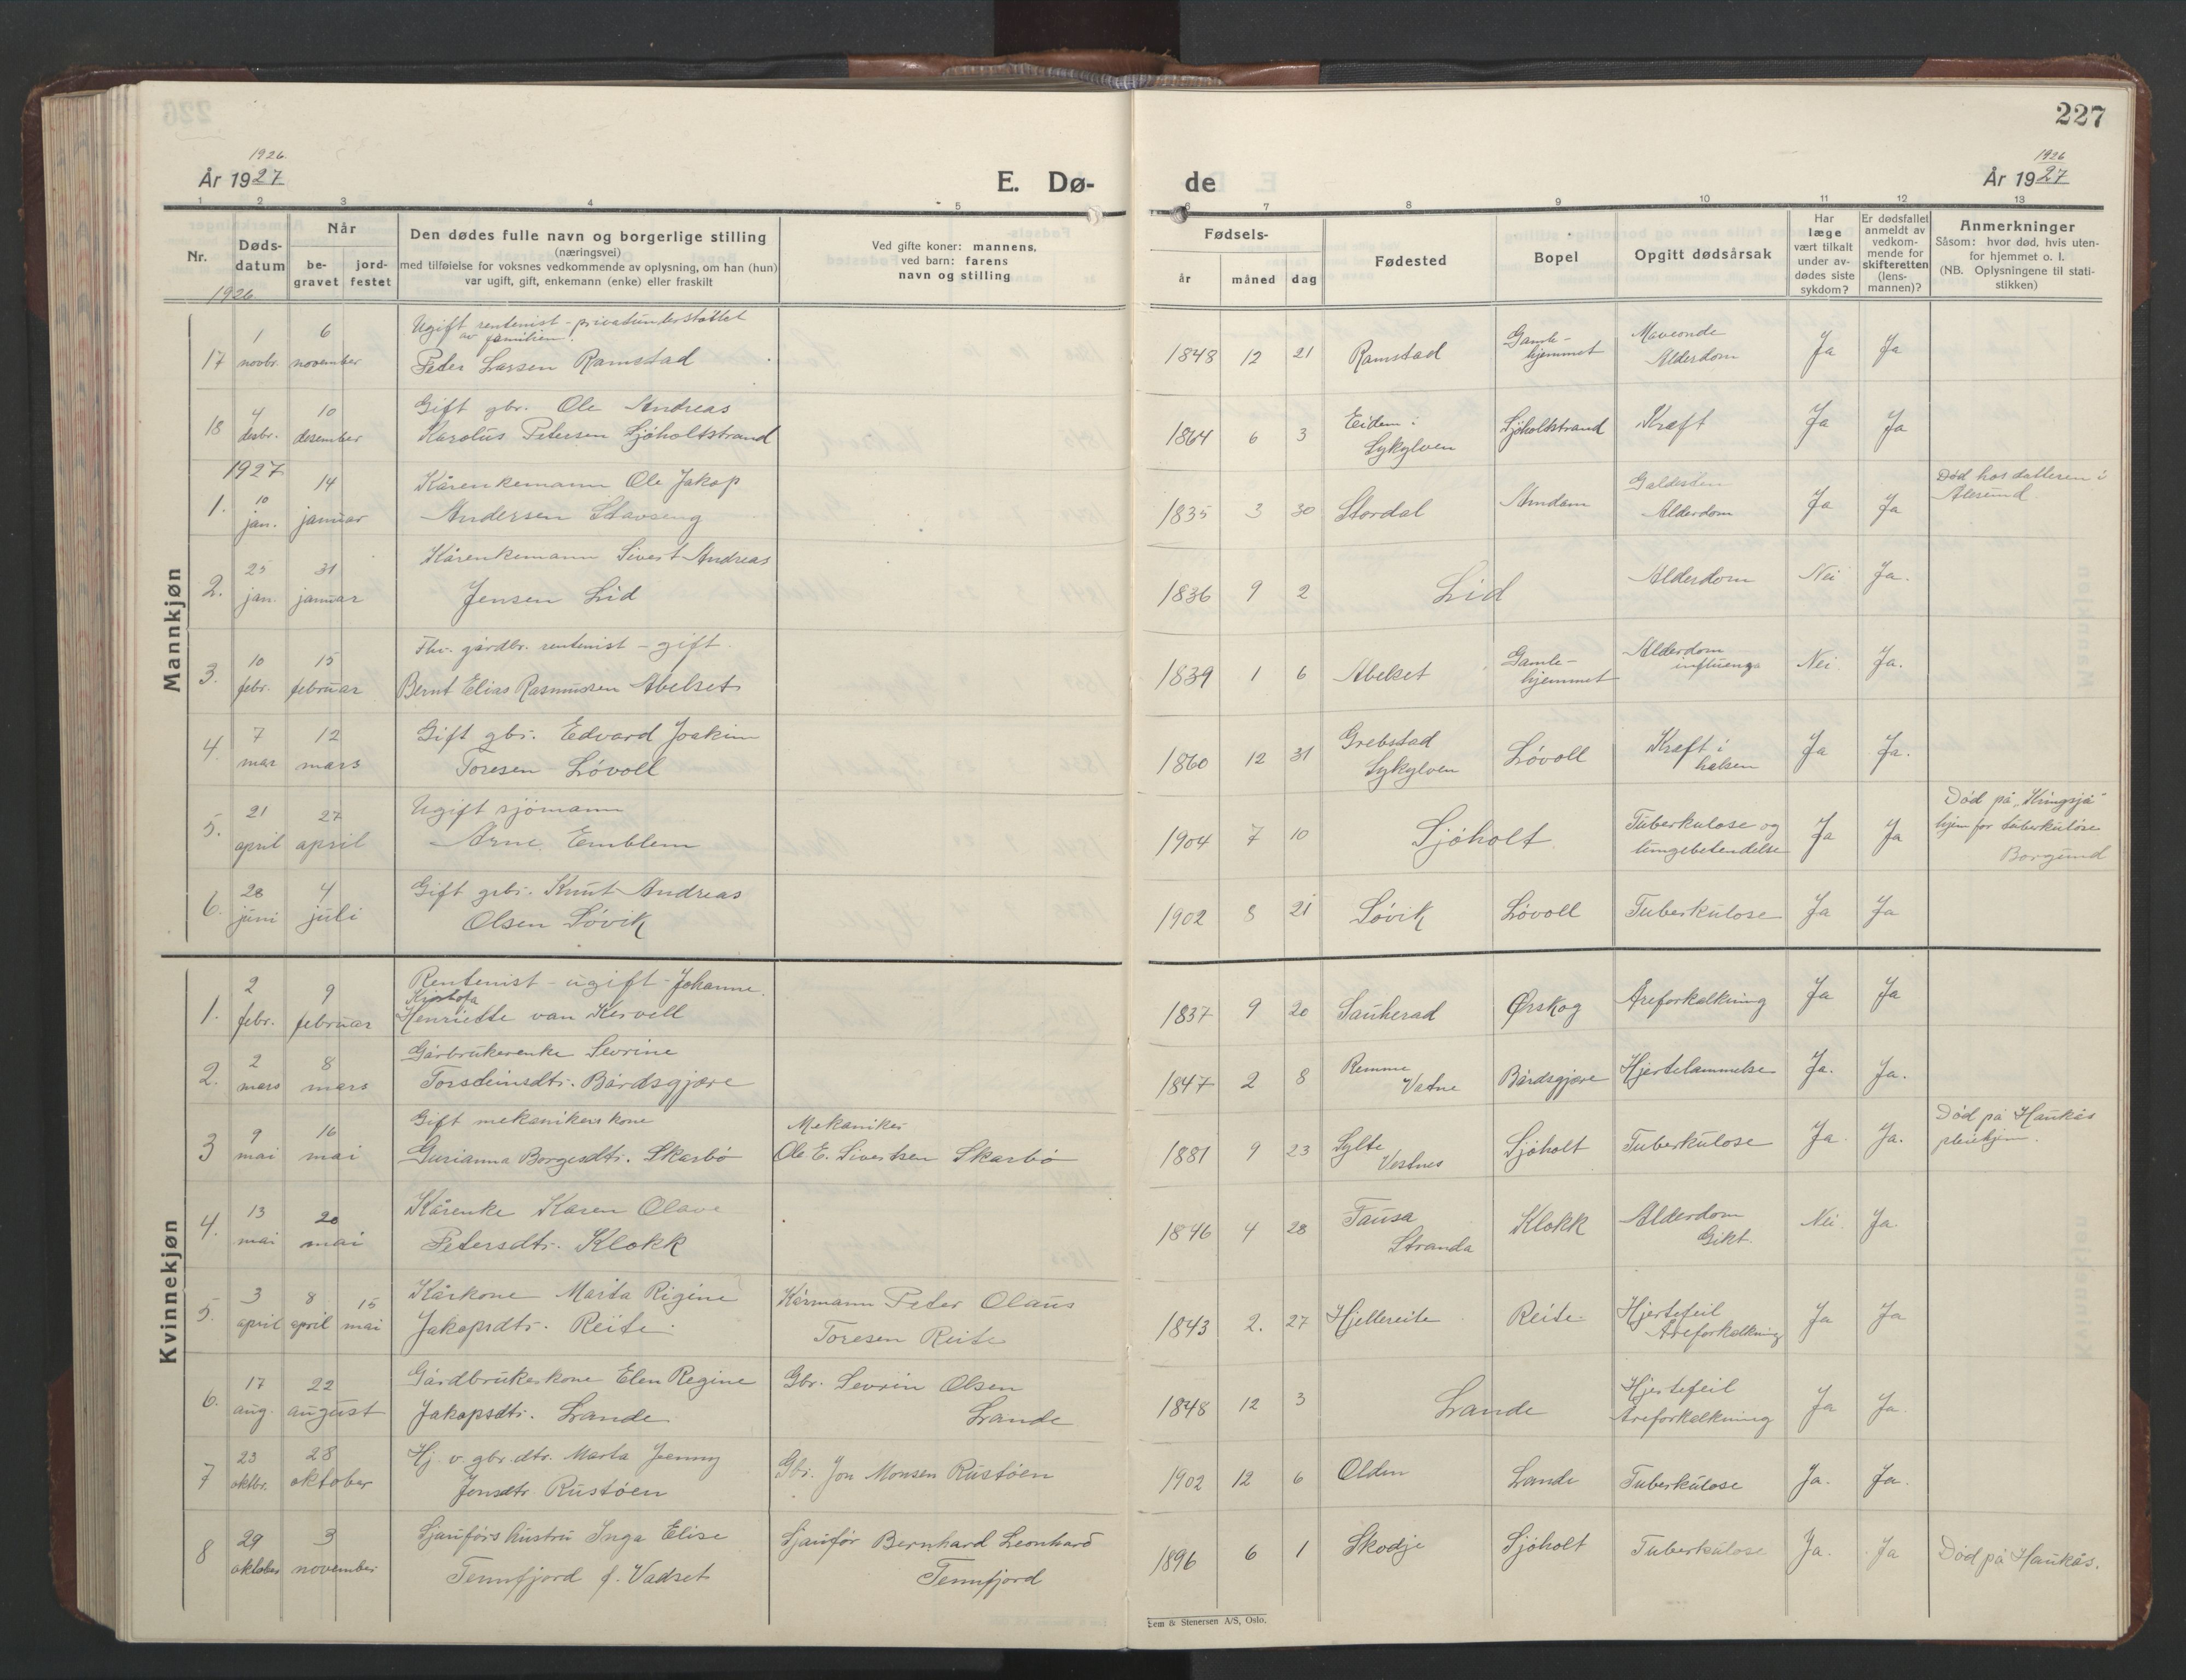 227
1926
År 1927
E. Dø-
de
1926
År 1927
1 2 3 4 5 6 7 8 9 10 11 12 13
Nr.
Døds-
datum
Når
be-
gravet
jord-
festet
Den dødes fulle navn og borgerlige stilling
(næringsvei)
med tilføielse for voksnes vedkommende av oplysning, om han (hun)
var ugift, gift, enkemann (enke) eller fraskilt
Ved gifte koner: mannens,
ved barn: farens
navn og stilling
Fødsels-
år måned dag
Fødested
Bopel
Opgitt dødsårsak
Har
læge
vært tilkalt
under av-
dødes siste
sykdom?
Er dødsfallet
anmeldt av
vedkom-
mende for
skifteretten
(lens-
mannen)?
Anmerkninger
Såsom: hvor død, hvis uten-
for hjemmet o. l.
(NB. Oplysningene til stati-
stikken)
Mannkjøn
1926
17 1 novbr. 6 november Ugift rentenist - privatunderstøttet
av familien.
Peder Larsen Ramstad 1848 12 21 Ramstad Gamle-
hjemmet Mavesonde
Alderdom Ja Ja
18 4 desbr. 10 desember Gift gbr. Ole Andreas
Karolus Petersen Sjøholtstrand 1864 6 3 Eidem i
Sykylven Sjøholdstrand Kræft Ja Ja
1927
1. 10 jan. 14 januar Kårenkemann Ole Jakop
Andersen Stavseng 1835 3 30 Stordal Amdam Galdesten
Alderdom Ja Ja Død hos datteren i
Ålesund
2. 25 jan. 31 januar Kårenkemann Sivert Andreas
Jensen Lid 1836 9 2 Lid Alderdom Nei Ja.
3. 10 febr. 15 februar Fhv. gårdbr. rentenist - gift.
Bernt Elias Rasmussen Abelset 1839 1 6 Abelset Gamle-
hjemmet Alderdom
influenga Nei Ja.
4. 7 mar 12 mars Gift gbr. Edvard Joakim
Toresen Løvoll 1860 12 31 Grebstad
Sykylven Løvoll Kræft i
halsen Ja Ja.
5. 21 april 27 april Ugift sjømann
Arne Emblem 1904 7 10 Sjøholt Tuberkulose og
lungebetendelse Ja Ja Død på "Kringsjå"
hjem for tuberkuløse
Borgund
6. 28 juni 4 juli Gift gbr. Knut Andreas
Olsen Løvik 1902 8 21 Løvik Løvoll Tuberkulose Ja Ja
Kvinnekjøn
1. 2 febr. 9 februar Rentenist - ugift - Johanne
Henriette van Kervell 1837 9 20 Sauherad Ørskog Åreforkalkning Ja Ja
2. 2 mars 8 mars Gårbrukerenke Sevrine
Torsteinsdtr. Bårdsgjære 1847 2 8 Remme
Vatne Bårdsgjære Hjertelammelse Ja. Ja.
3 9 mai 16 mai Gift mekanikerskone
Gurianna Borgesdtr. Skarbø Mekaniker
Ole E. Sivertsen Skarbø 1881 9 23 Sylte
Vestnes Sjøholt Tuberkulose Ja Ja. Død på Haukås
pleiehjem.
4. 13 mai 20 mai Kårenke Karen Olave
Petersdtr. Klokk 1846 4 28 Tausa
Stranda Klokk Alderdom
Gikt. Nei Ja
5. 3 april 8 april 15 mai Kårkone Marta Rigine
Jakopsdtr. Reite Kårmann Peter Olaus
Toresen Reite 1843 2. 27 Hjellereite Reite Hjertefeil
Åreforkalkning Ja Ja
6. 17 aug. 22 august Gårdbrukerkone Elen Regine
Jakopsdtr. Lande Gbr. Sevrin Olsen
Lande 1848 12 3 Lande Hjertefeil
Åreforkalkning Ja Ja.
7 23 oktbr. 28 oktober Hj. v. gbr.dtr. Marta Jenny
Jonsdtr. Rustøen Gbr. Jon Monsen Rustøen 1902 12 6 Olden Lande Tuberkulose Ja. Ja.
8 29 oktober 3 november Sjauførs hustru Inga Elise
Tennfjord f. Vadset Sjauför Bernhard Leonhard
Tennfjord 1896 6 1 Skodje Sjøholt Tuberkulose Ja. Ja Død på Haukås.
Sem & Stenersen A/S, Oslo.